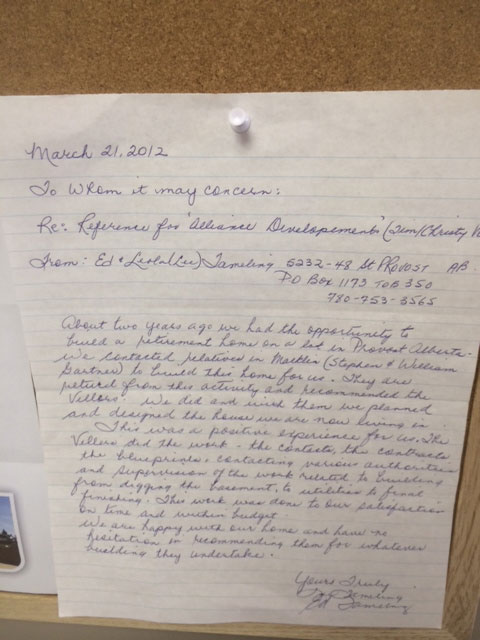 March 21, 2012
To Whom it may concern:
Re: Reference for "Alliance Developements" (Lem/Christy
From: Ed & Leola (Lee) Tameling 5232-48 St PROVOST AB
PO Box 1173 T0B 3S0
780-753-3565
About two years ago we had the opportunity to
build a retirement home on a lot in Provost Alberta.
We contacted relatives in Macklin (Stephen & William
Gartner) to build this home for us. They are
retired from this activity and recommended the
Vellers. We did and with them we planned
and designed the house we are now living in.
This was a positive experience for us. The
Vellers did the work - the contacts, the contracts
the blueprints, contacting various authorities
and supervision of the work related to building
from digging the basement, to utilities to final
finishing. This work was done to our satisfaction
on time and within budget.
We are happy with our home and have no
hesitation in recommending them for whatever
building they undertake.
Yours Truly
Tameling
Ed Tameling